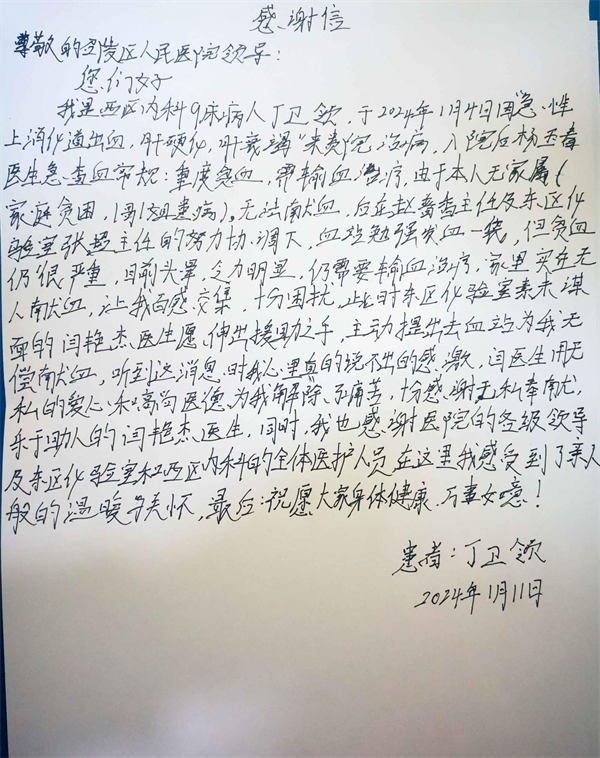 感谢信
尊敬的召陵区人民医院领导:
您们好
我是西区内科9床病人丁卫领,于2024年1月4日因"急性
上消化道出血,肝硬化,肝衰竭"来贵院治病,入院后杨玉春
医生急查血常规:重度贫血,需输血治疗,由于本人无家属(
家庭贫困,哥姐患病)。无法献血,后在赵喜香主任及东区化
验室张超主任的努力协调下,血站勉强发血一袋,但贫血
仍很严重,目前头晕,乏力明显,仍需要输血治疗,家里实在无
人献血,让我百感交集,十分困扰,此时东区化验室素未谋
面的闫艳杰医生愿伸出援助之手,主动提出去血站为我无
偿献血,听到这消息时我心里真的说不出的感激,闫医生用无
私的爱心和高尚医德为我解除了痛苦,十分感谢无私奉献,
乐于助人的闫艳杰医生,同时,我也感谢医院的各级领导
及东区化验室和西区内科的全体医护人员在这里我感受到了亲人
般的温暖与关怀,最后:祝愿大家身体健康,万事如意!
患者:丁卫领
2024年1月11日